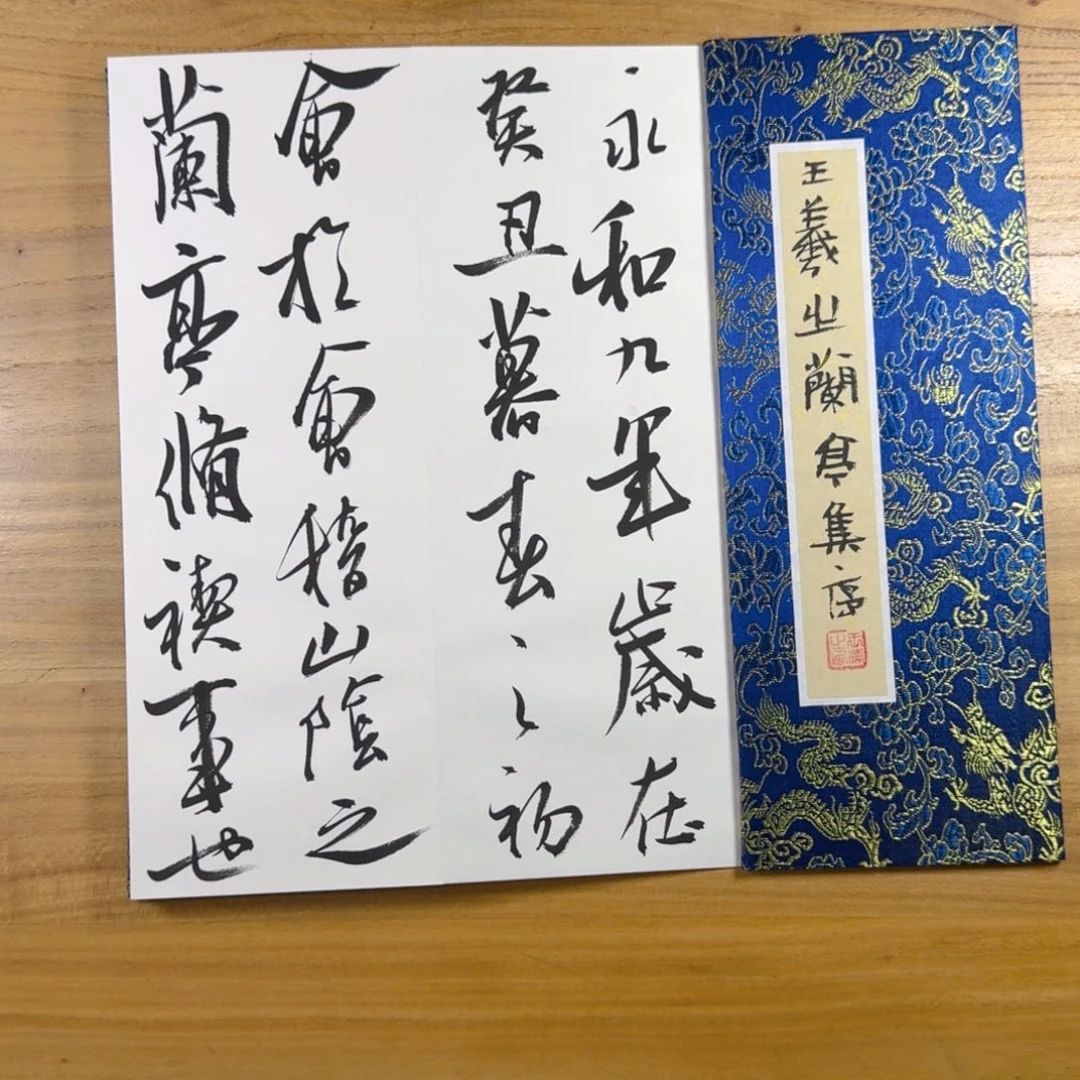 王羲之蘭亭集序
永和九年歲在
癸丑暮春之初
會於會稽山陰之
蘭亭脩禊事也